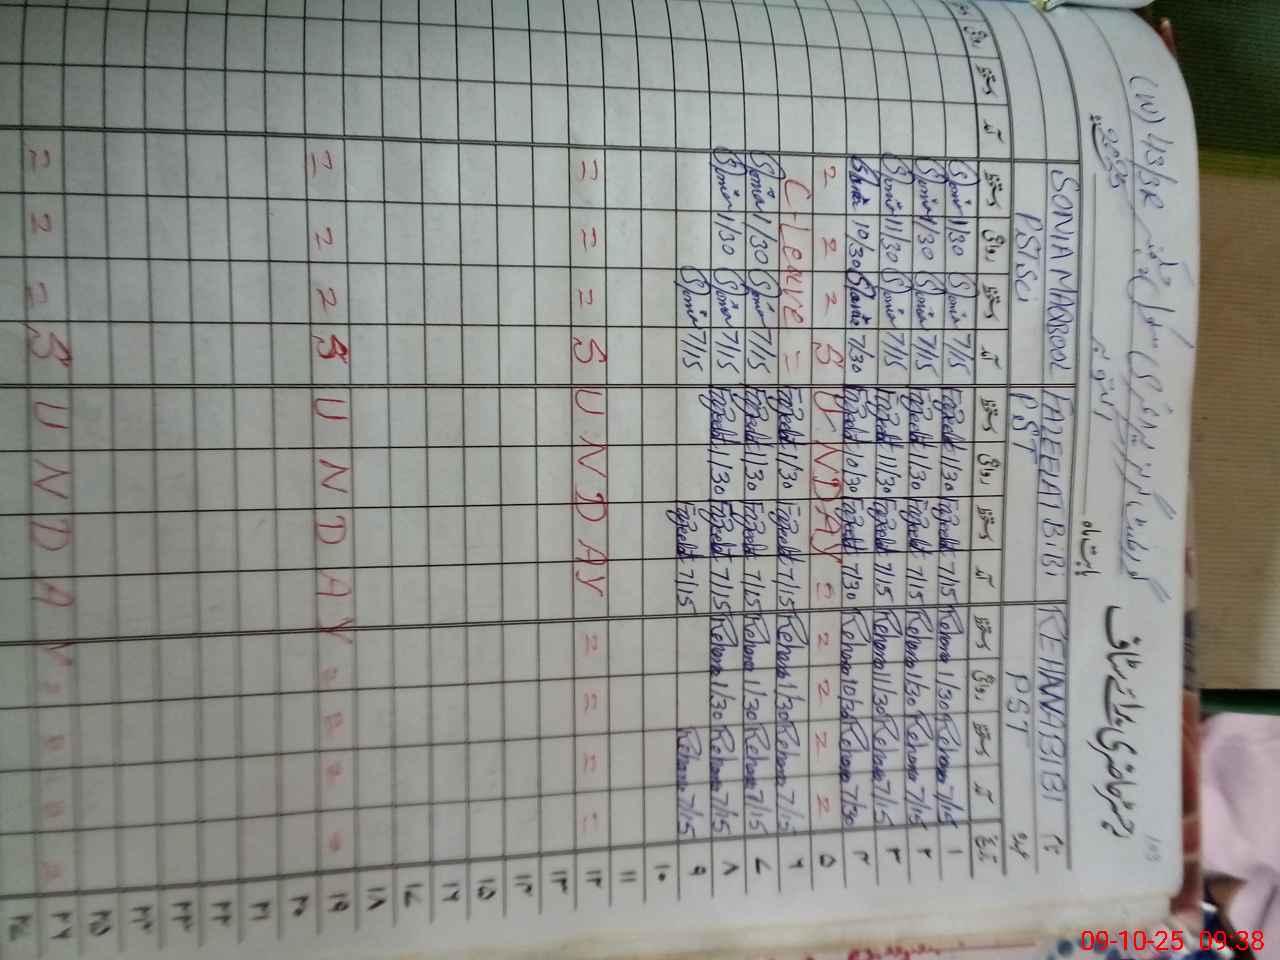 رجسٹر حاضری برائے سٹاف 103
43/3R (W)
بابت ماہ 2025
SONIA MAQBOOL FAZEELAT BIBI REHANA BIBI نام
PSTSci PST PST عہدہ
دستخط روانگی دستخط آمد دستخط روانگی دستخط آمد دستخط روانگی دستخط آمد تاریخ
Sonia 1/30 Sonia 7/15 Fazeelat 1/30 Fazeelat 7/15 Rehana 1/30 Rehana 7/15 ۱
Sonia 1/30 Sonia 7/15 Fazeelat 1/30 Fazeelat 7/15 Rehana 1/30 Rehana 7/15 ۲
Sonia 11/30 Sonia 7/15 Fazeelat 11/30 Fazeelat 7/15 Rehana 11/30 Rehana 7/15 ۳
Sonia 10/30 Sonia 7/30 Fazeelat 10/30 Fazeelat 7/30 Rehana 10/30 Rehana 7/30 ۴
= = = SUNDAY = = = = = ۵
C-Leave = Fazeelat 1/30 Fazeelat 7/15 Rehana 1/30 Rehana 7/15 ۶
Sonia 1/30 Sonia 7/15 Fazeelat 1/30 Fazeelat 7/15 Rehana 1/30 Rehana 7/15 ۷
Sonia 1/30 Sonia 7/15 Fazeelat 1/30 Fazeelat 7/15 Rehana 1/30 Rehana 7/15 ۸
Sonia 7/15 Fazeelat 7/15 Rehana 7/15 ۹
۱۰
۱۱
= = = SUNDAY = = = = ۱۲
۱۳
۱۴
۱۵
۱۶
۱۷
۱۸
= = = SUNDAY = = = = ۱۹
۲۰
۲۱
۲۲
۲۳
۲۴
۲۵
= = = SUNDAY = = = = ۲۶
۲۷
09-10-25 09:38